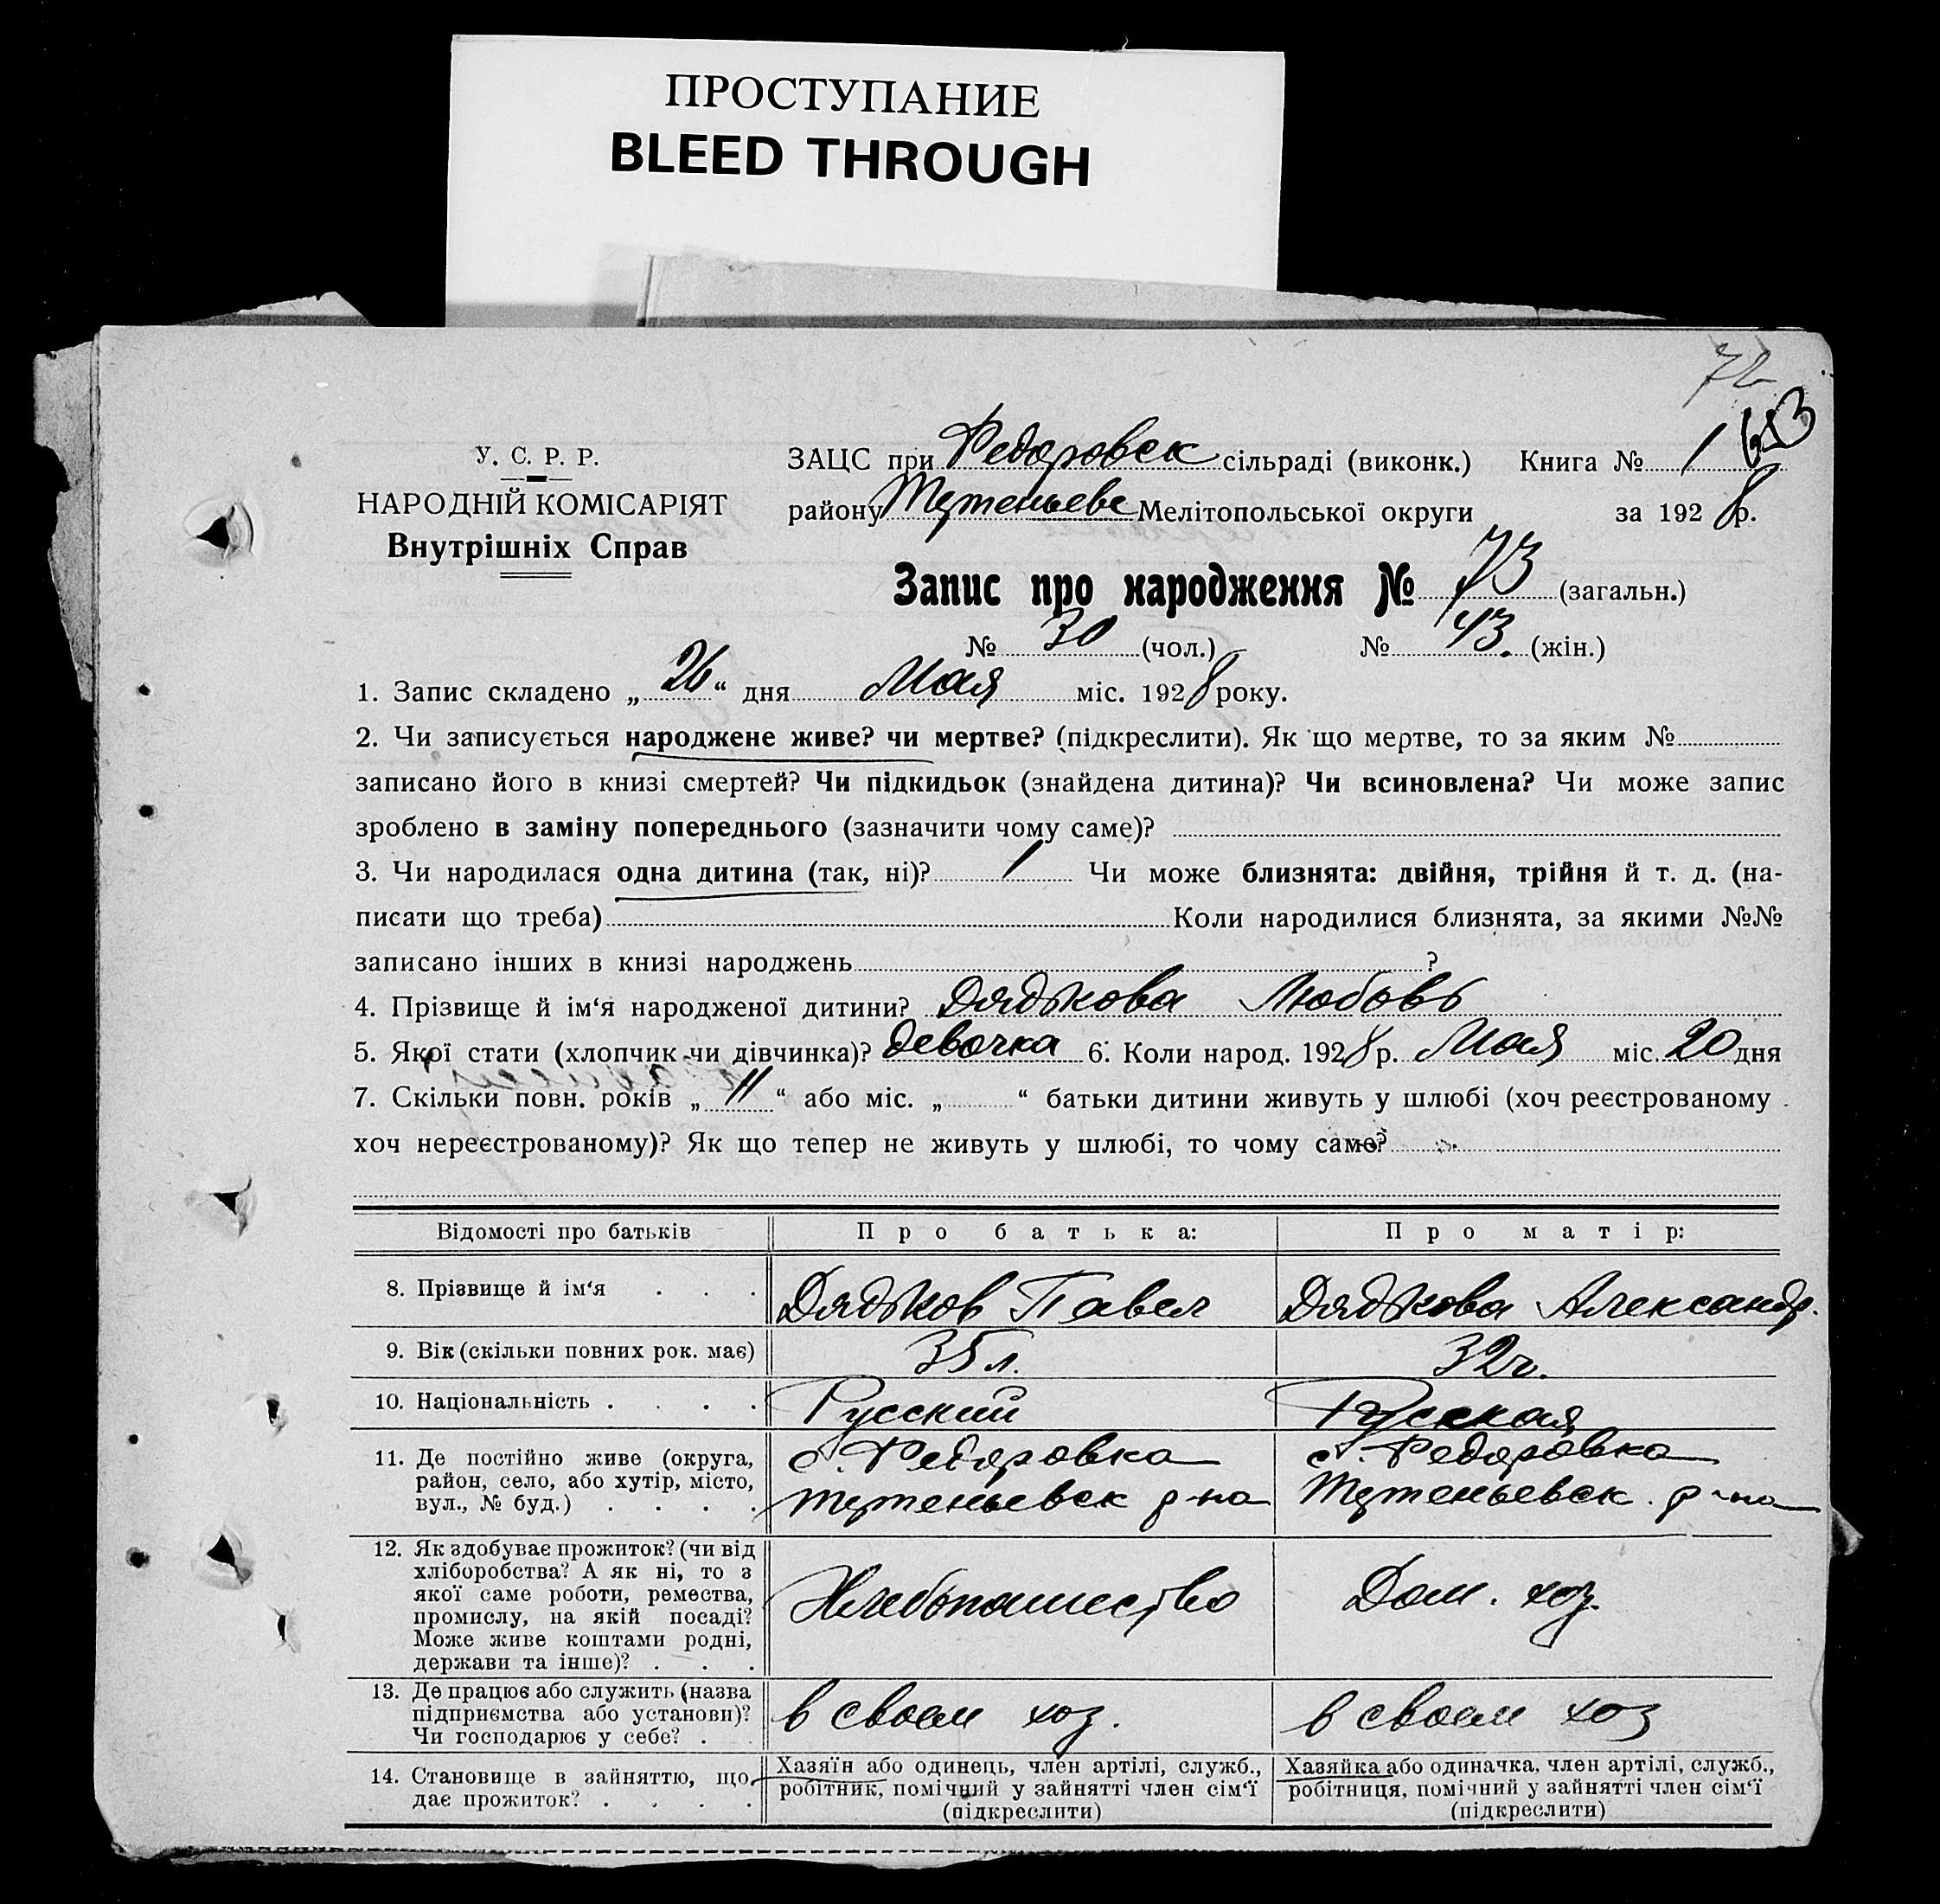 ПРОСТУПАНИЕ
BLEED THROUGH
72
У. С. Р. Р.
НАРОДНІЙ КОМІСАРІЯТ
Внутрішніх Справ
ЗАЦС при Федоровск сільраді (виконк.) Книга № 1
району Тутеньевс Мелітопольської округи за 1928 р.
Запис про народження № 73 (загальн.)
№ 30 (чол.) № 43. (жін.)
1. Запис складено „ 26 “ дня Мая міс. 1928 року.
2. Чи записується народжене живе? чи мертве? (підкреслити). Як що мертве, то за яким №
записано його в книзі смертей? Чи підкидьок (знайдена дитина)? Чи всиновлена? Чи може запис
зроблено в заміну попереднього (зазначити чому саме)?
3. Чи народилася одна дитина (так, ні)? 1 Чи може близнята: двійня, трійня й т. д. (на-
писати що треба) Коли народилися близнята, за якими №№
записано інших в книзі народжень ?
4. Прізвище й ім‘я народженої дитини? Дядькова Любовь
5. Якої стати (хлопчик чи дівчинка)? девочка 6. Коли народ. 1928 р. Мая міс. 20 дня
7. Скільки повн. років „ 11 “ або міс. „ “ батьки дитини живуть у шлюбі (хоч реєстрованому
хоч нереєстрованому)? Як що тепер не живуть у шлюбі, то чому саме?
Відомості про батьків Про батька: Про матір:
8. Прізвище й ім‘я . . . Дядьков Павел Дядькова Александр.
9. Вік (скільки повних рок. має) 35 л. 32 г.
10. Національність . . . . Русский Русская
11. Де постійно живе (округа, район, село, або хутір, місто, вул., № буд.) . . . .
с. Федоровка
Тутеньевск р-на
с. Федоровка
Тутеньевск. р-на
12. Як здобуває прожиток? (чи від
хліборобства? А як ні, то з
якої саме роботи, ремества,
промислу, на якій посаді?
Може живе коштами родні,
держави та інше)? . . .
Хлебопашество
Дом. хоз.
13. Де працює або служить (назва
підприємства або установи)?
Чи господарює у себе? .
в своем хоз.
в своем хоз
14. Становище в зайняттю, що
дає прожиток? . . . .
Хазяїн або одинець, член артілі, служб.,
робітник, помічний у зайнятті член сім‘ї
(підкреслити)
Хазяйка або одиначка, член артілі, служб.,
робітниця, помічний у зайнятті член сім‘ї
(підкреслити)